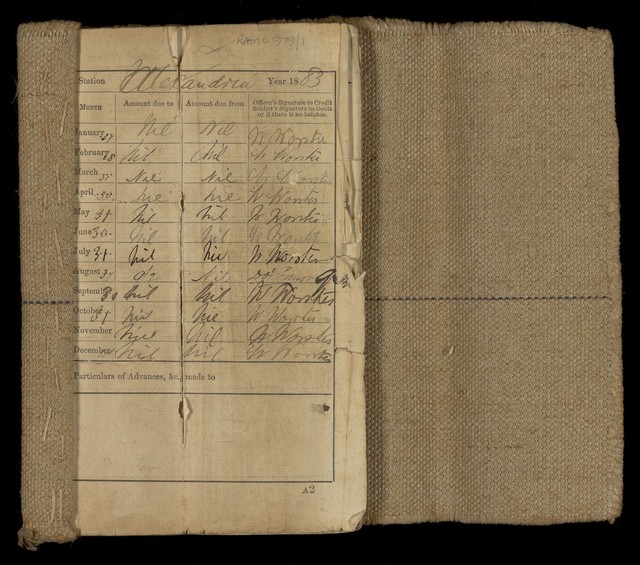 RAMC 979/1
Station Alexandria Year 1883
MONTH Amount due to Amount due from Officer's Signature to Credit
Soldier's Signature to Debit
or if there is no balance.
January 31 Nil Nil W Worster
February 28 Nil Nil W Worster
March 31 Nil Nil W Worster
April 30 Nil Nil W Worster
May 31 Nil Nil W Worster
June 30 Nil Nil W Worster
July 31 Nil Nil W Worster
August 31 Nil
September 30 Nil Nil W Worster
October 31 Nil Nil W Worster
November Nil Nil W Worster
December Nil Nil W Worster
Particulars of Advances, &c., made to
A2